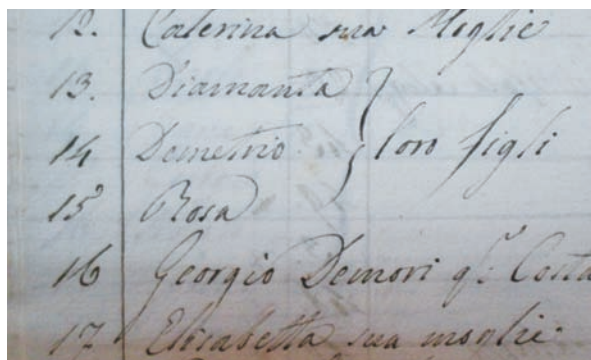 12. Caterina sua Moglie
13. Diamanta
14 Demetrio } loro figli
15 Rosa
16 Georgio Demori q.m Costa
17. Elisabetta sua moglie.